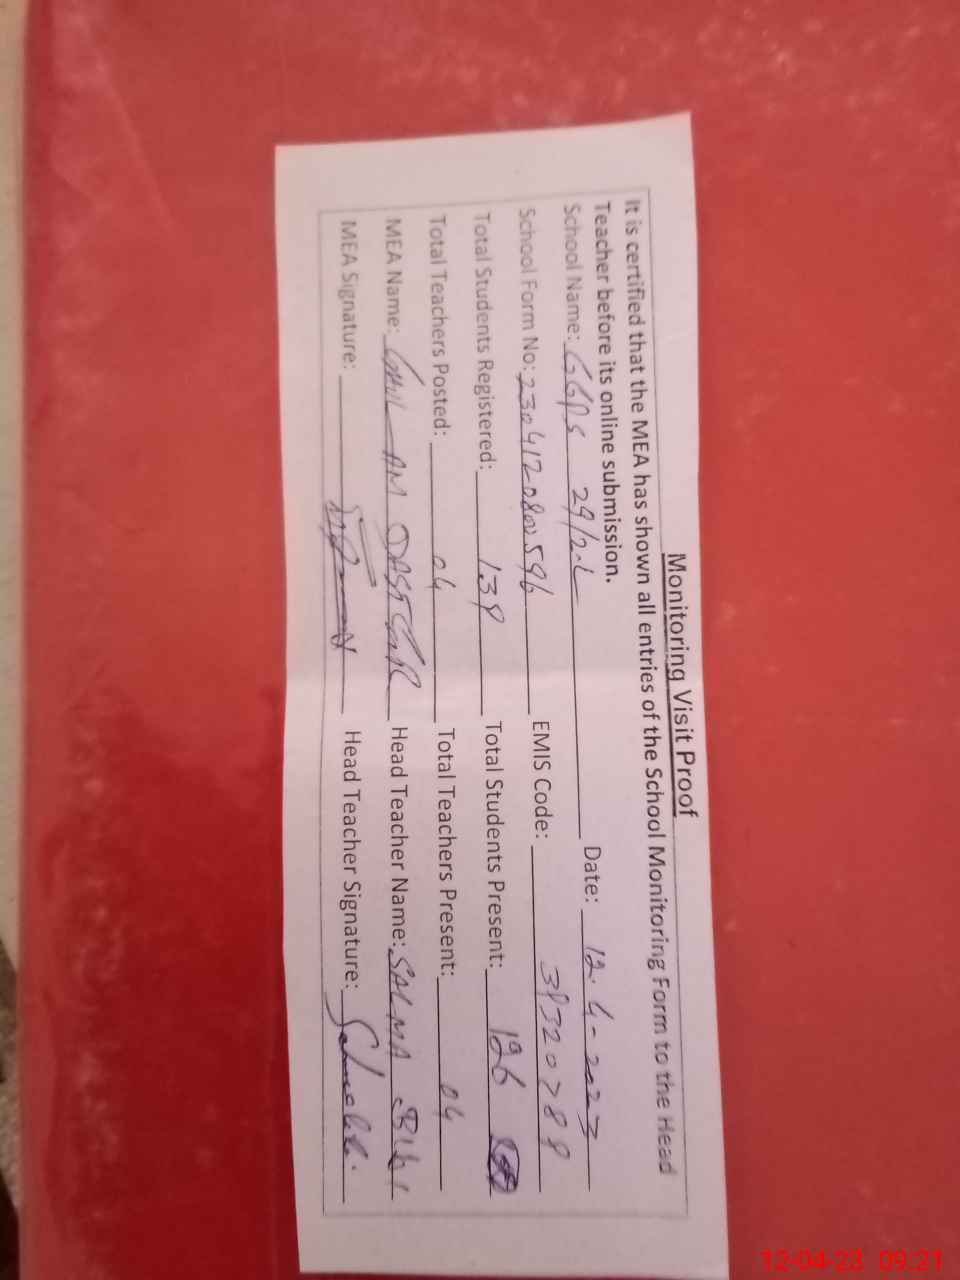 Monitoring Visit Proof
It is certified that the MEA has shown all entries of the School Monitoring Form to the Head
Teacher before its online submission.
School Name: GGPS 29/2-L Date: 12-4-2023
School Form No: 2304120802596 EMIS Code:
Total Students Registered: 139 Total Students Present: 126
Total Teachers Posted: 04 Total Teachers Present: 04
MEA Name: Head Teacher Name: SALMA BIBI
MEA Signature: Head Teacher Signature:
12-04-23 09:21